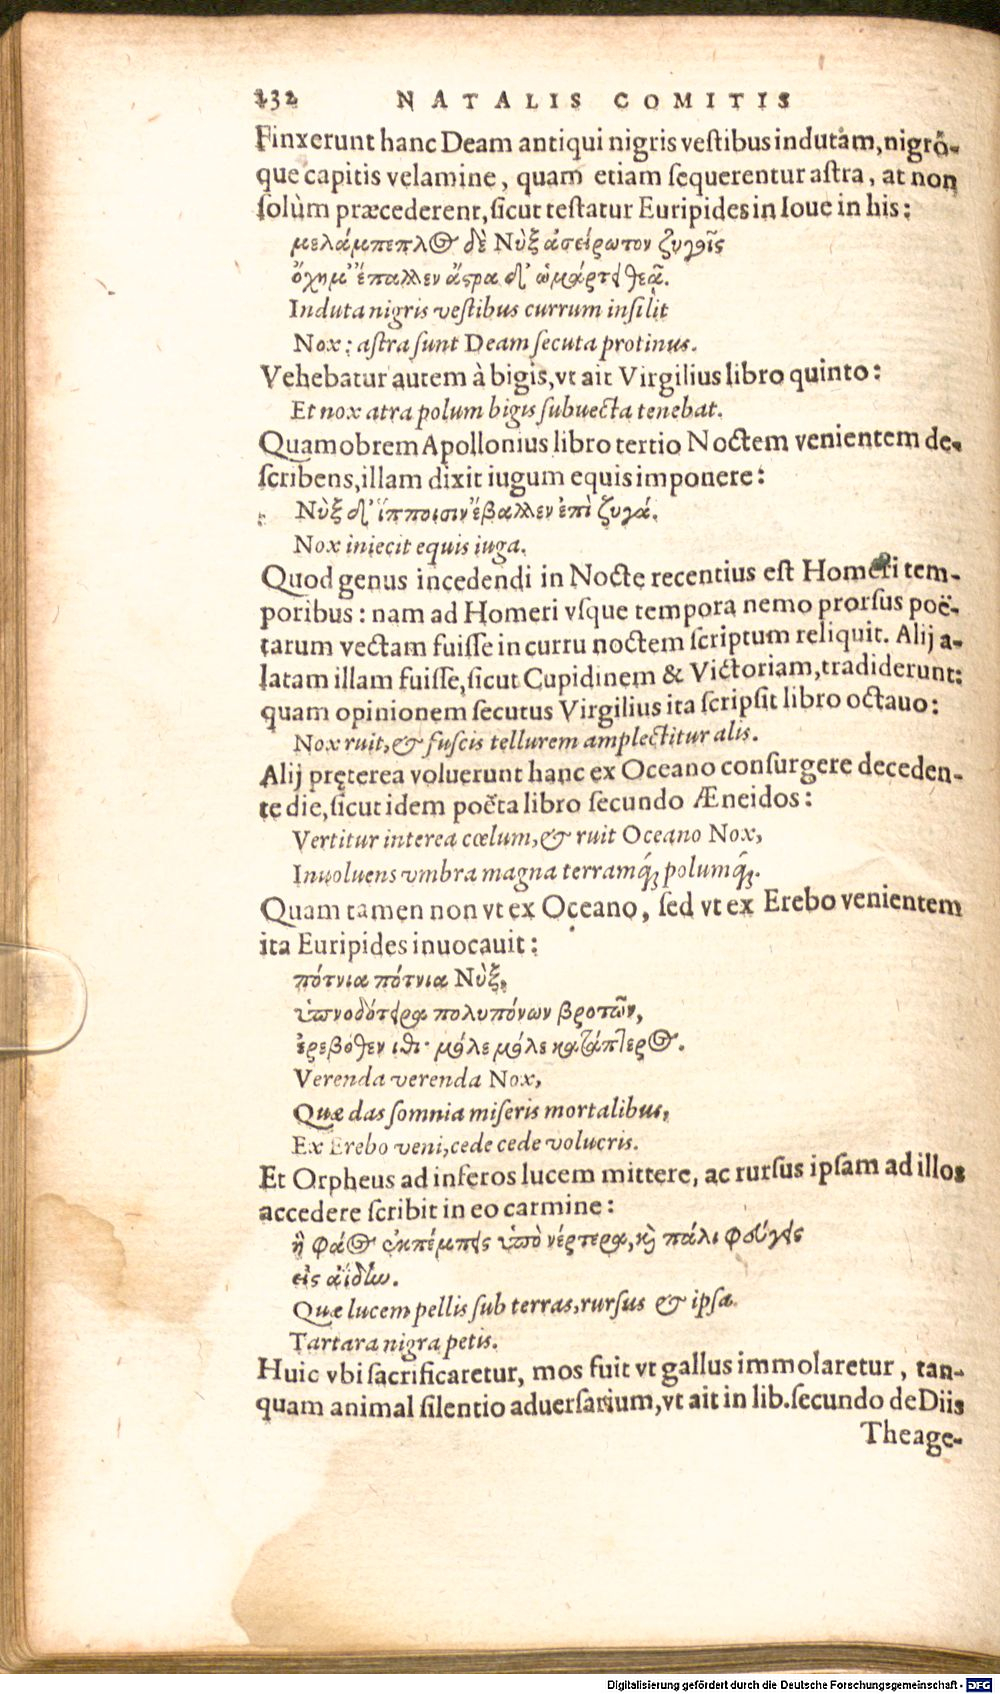 232 NATALIS COMITIS
Finxerunt hanc Deam antiqui nigris vestibus indutam, nigrô-
que capitis velamine, quam etiam sequerentur astra, at non
solùm præcederent, sicut testatur Euripides in Ioue in his:
μελάμπεπλος δὲ Νὺξ ἀσείρωτον ζυγοῖς
ὄχημ' ἔπαλλεν ἄστρα δ' ὡμάρτει θεᾷ.
Induta nigris vestibus currum insilit
Nox: astra sunt Deam secuta protinus.
Vehebatur autem à bigis, vt ait Virgilius libro quinto:
Et nox atra polum bigis subuecta tenebat.
Quamobrem Apollonius libro tertio Noctem venientem de-
scribens, illam dixit iugum equis imponere:
Νὺξ δ' ἵπποισιν ἔβαλλεν ἐπὶ ζυγά.
Nox iniecit equis iuga.
Quod genus incedendi in Nocte recentius est Homeri tem-
poribus: nam ad Homeri vsque tempora nemo prorsus poë-
tarum vectam fuisse in curru noctem scriptum reliquit. Alij a-
latam illam fuisse, sicut Cupidinem & Victoriam, tradiderunt:
quam opinionem secutus Virgilius ita scripsit libro octauo:
Nox ruit, & fuscis tellurem amplectitur alis.
Alij pręterea voluerunt hanc ex Oceano consurgere deceden-
te die, sicut idem poëta libro secundo Æneidos:
Vertitur interea cœlum, & ruit Oceano Nox,
Inuoluens vmbra magna terramq́; polumq́;.
Quam tamen non vt ex Oceano, sed vt ex Erebo venientem
ita Euripides inuocauit:
πότνια πότνια Νὺξ,
ὑπνοδότειρα πολυπόνων βροτῶν,
ἐρεβόθεν ιθι· μόλε μόλε κατάπτερος.
Verenda verenda Nox,
Quæ das somnia miseris mortalibus,
Ex Erebo veni, cede cede volucris.
Et Orpheus ad inferos lucem mittere, ac rursus ipsam ad illos
accedere scribit in eo carmine:
ἣ φάος ἐκπέμπεις ὑπὸ νέρτερα, καὶ πάλι φεύγεις
εἰς ἀΐδην.
Quæ lucem pellis sub terras, rursus & ipsa
Tartara nigra petis.
Huic vbi sacrificaretur, mos fuit vt gallus immolaretur, tan-
quam animal silentio aduersarium, vt ait in lib. secundo de Diis
Theage-
Digitalisierung gefördert durch die Deutsche Forschungsgemeinschaft - DFG